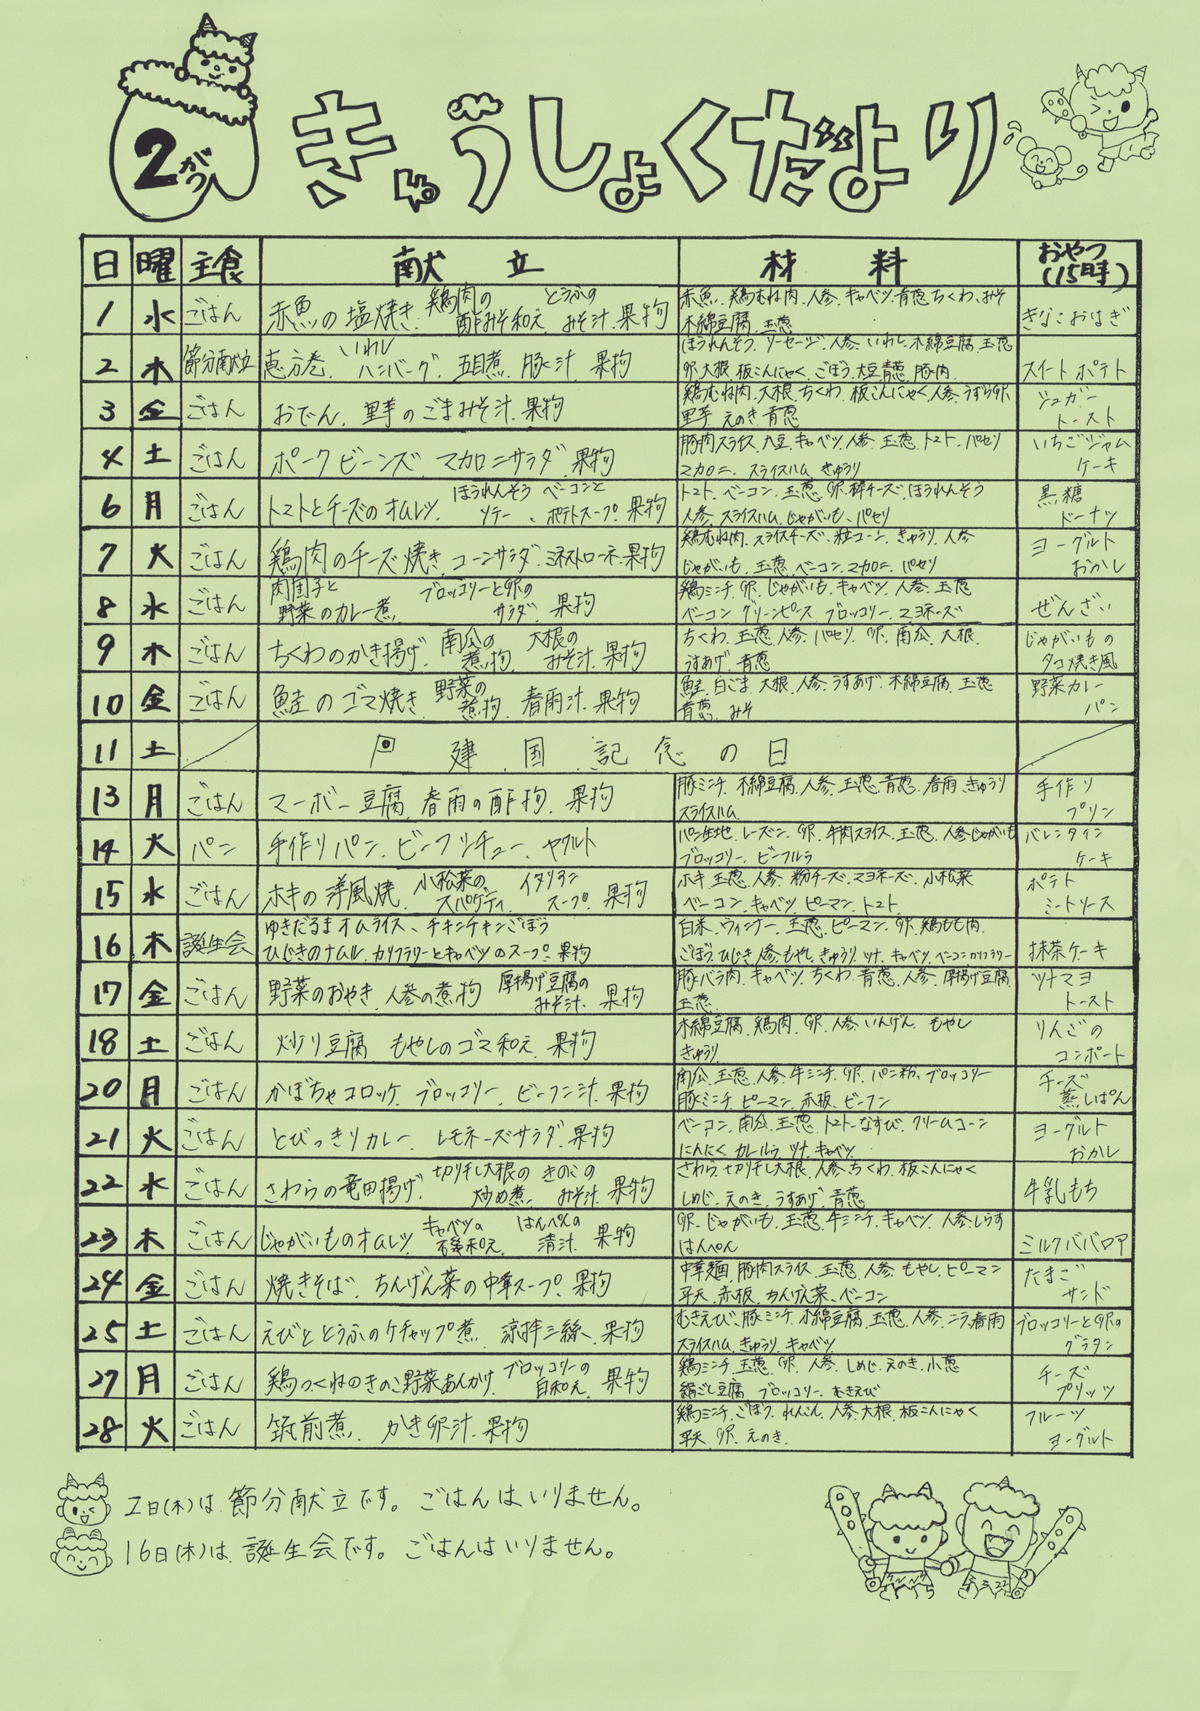 2がつ
きゅうしょくだより
日 曜 主食 献立 材料 おやつ(15時)
1 水 ごはん 赤魚の塩焼き、鶏肉の酢みそ和え、とうふのみそ汁、果物 赤魚、鶏むね肉、人参、キャベツ、青葱、ちくわ、みそ きなこおはぎ
木綿豆腐、玉葱
2 木 節分献立 恵方巻、いわしハンバーグ、五目煮、豚汁、果物 ほうれんそう、ソーセージ、人参、いわし、木綿豆腐、玉葱 スイートポテト
卵、大根、板こんにゃく、ごぼう、大豆、青葱、豚肉
3 金 ごはん おでん、里芋のごまみそ汁、果物 鶏むね肉、大根、ちくわ、板こんにゃく、人参、うずら卵、 シュガートースト
里芋、えのき、青葱
4 土 ごはん ポークビーンズ マカロニサラダ、果物 豚肉スライス、大豆、キャベツ、人参、玉葱、トマト、パセリ いちごジャムケーキ
マカロニ、スライスハム、きゅうり
6 月 ごはん トマトとチーズのオムレツ、ほうれんそうソテー、ベーコンとポテトスープ、果物 トマト、ベーコン、玉葱、卵、粉チーズ、ほうれんそう 黒糖ドーナツ
人参、スライスハム、じゃがいも、パセリ
7 火 ごはん 鶏肉のチーズ焼き、コーンサラダ、ミネストローネ、果物 鶏むね肉、スライスチーズ、粒コーン、きゅうり、人参 ヨーグルトおかし
じゃがいも、玉葱、ベーコン、マカロニ、パセリ
8 水 ごはん 肉団子と野菜のカレー煮、ブロッコリーと卵のサラダ、果物 鶏ミンチ、卵、じゃがいも、キャベツ、人参、玉葱 ぜんざい
ベーコン グリーンピース ブロッコリー、マヨネーズ
9 木 ごはん ちくわのかき揚げ、南瓜の煮物、大根のみそ汁、果物 ちくわ、玉葱、人参、パセリ、卵、南瓜、大根、 じゃがいものタコ焼き風
うすあげ、青葱
10 金 ごはん 鮭のゴマ焼き、野菜の煮物、春雨汁、果物 鮭、白ごま、大根、人参、うすあげ、木綿豆腐、玉葱 野菜カレーパン
青葱、みそ
11 土 建国記念の日
13 月 ごはん マーボー豆腐、春雨の酢物、果物 豚ミンチ、木綿豆腐、人参、玉葱、青葱、春雨、きゅうり 手作りプリン
スライスハム
14 火 パン 手作りパン、ビーフシチュー、ヤクルト パン生地、レーズン、卵、牛肉スライス、玉葱、人参、じゃがいも バレンタインケーキ
ブロッコリー、ビーフルウ
15 水 ごはん ホキの洋風焼、小松菜のスパゲティ、イタリアンスープ、果物 ホキ、玉葱、人参、粉チーズ、マヨネーズ、小松菜 ポテトミートソース
ベーコン、キャベツ、ピーマン、トマト
16 木 誕生会 ゆきだるまオムライス、チキンチキンごぼう 白米、ウィンナー、玉葱、ピーマン、卵、鶏もも肉、 抹茶ケーキ
ひじきのナムル、カリフラワーとキャベツのスープ、果物 ごぼう、ひじき、人参、もやし、きゅうり、ツナ、キャベツ、ベーコン、カリフラワー
17 金 ごはん 野菜のおやき、人参の煮物 厚揚げ豆腐のみそ汁、果物 豚バラ肉、キャベツ、ちくわ、青葱、人参、厚揚げ豆腐 ツナマヨトースト
玉葱
18 土 ごはん 炒り豆腐 もやしのゴマ和え、果物 木綿豆腐、鶏肉、卵、人参、いんげん、もやし りんごのコンポート
きゅうり
20 月 ごはん かぼちゃコロッケ、ブロッコリー、ビーフン汁、果物 南瓜、玉葱、人参、牛ミンチ、卵、パン粉、ブロッコリー チーズ蒸しぱん
豚ミンチ、ピーマン、赤板、ビーフン
21 火 ごはん とびっきりカレー、レモネーズサラダ、果物 ベーコン、南瓜、玉葱、トマト、なすび、クリームコーン ヨーグルトおかし
にんにく カレールウ、ツナ、キャベツ
22 水 ごはん さわらの竜田揚げ、切り干し大根の炒め煮、きのこのみそ汁、果物 さわら、切り干し大根、人参、ちくわ、板こんにゃく 牛乳もち
しめじ、えのき、うすあげ、青葱
23 木 ごはん じゃがいものオムレツ、キャベツの磯和え、はんぺんの清汁、果物 卵、じゃがいも、玉葱、牛ミンチ、キャベツ、人参、しらす ミルクババロア
はんぺん
24 金 ごはん 焼きそば、ちんげん菜の中華スープ、果物 中華麺、豚肉スライス、玉葱、人参、もやし、ピーマン たまごサンド
平天、赤板、ちんげん菜、ベーコン
25 土 ごはん えびととうふのケチャップ煮、涼拌三絲、果物 むきえび、豚ミンチ、木綿豆腐、玉葱、人参、ニラ、春雨 ブロッコリーと卵のグラタン
スライスハム、きゅうり、キャベツ
27 月 ごはん 鶏つくねのきのこ野菜あんかけ、ブロッコリーの白和え、果物 鶏ミンチ、玉葱、卵、人参、しめじ、えのき、小葱 チーズブリッツ
絹ごし豆腐 ブロッコリー、むきえび
28 火 ごはん 筑前煮、かき卵汁、果物 鶏ミンチ、ごぼう、れんこん、人参、大根、板こんにゃく フルーツヨーグルト
平天、卵、えのき、
2日(木)は、節分献立です。ごはんはいりません。
16日(木)は、誕生会です。ごはんはいりません。